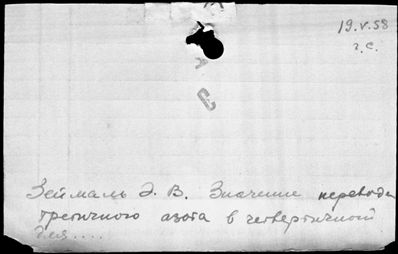 19.V.58
г.С.
Зеймаль Э. В. Значение перевода
третичного азота в четвертичной
для....